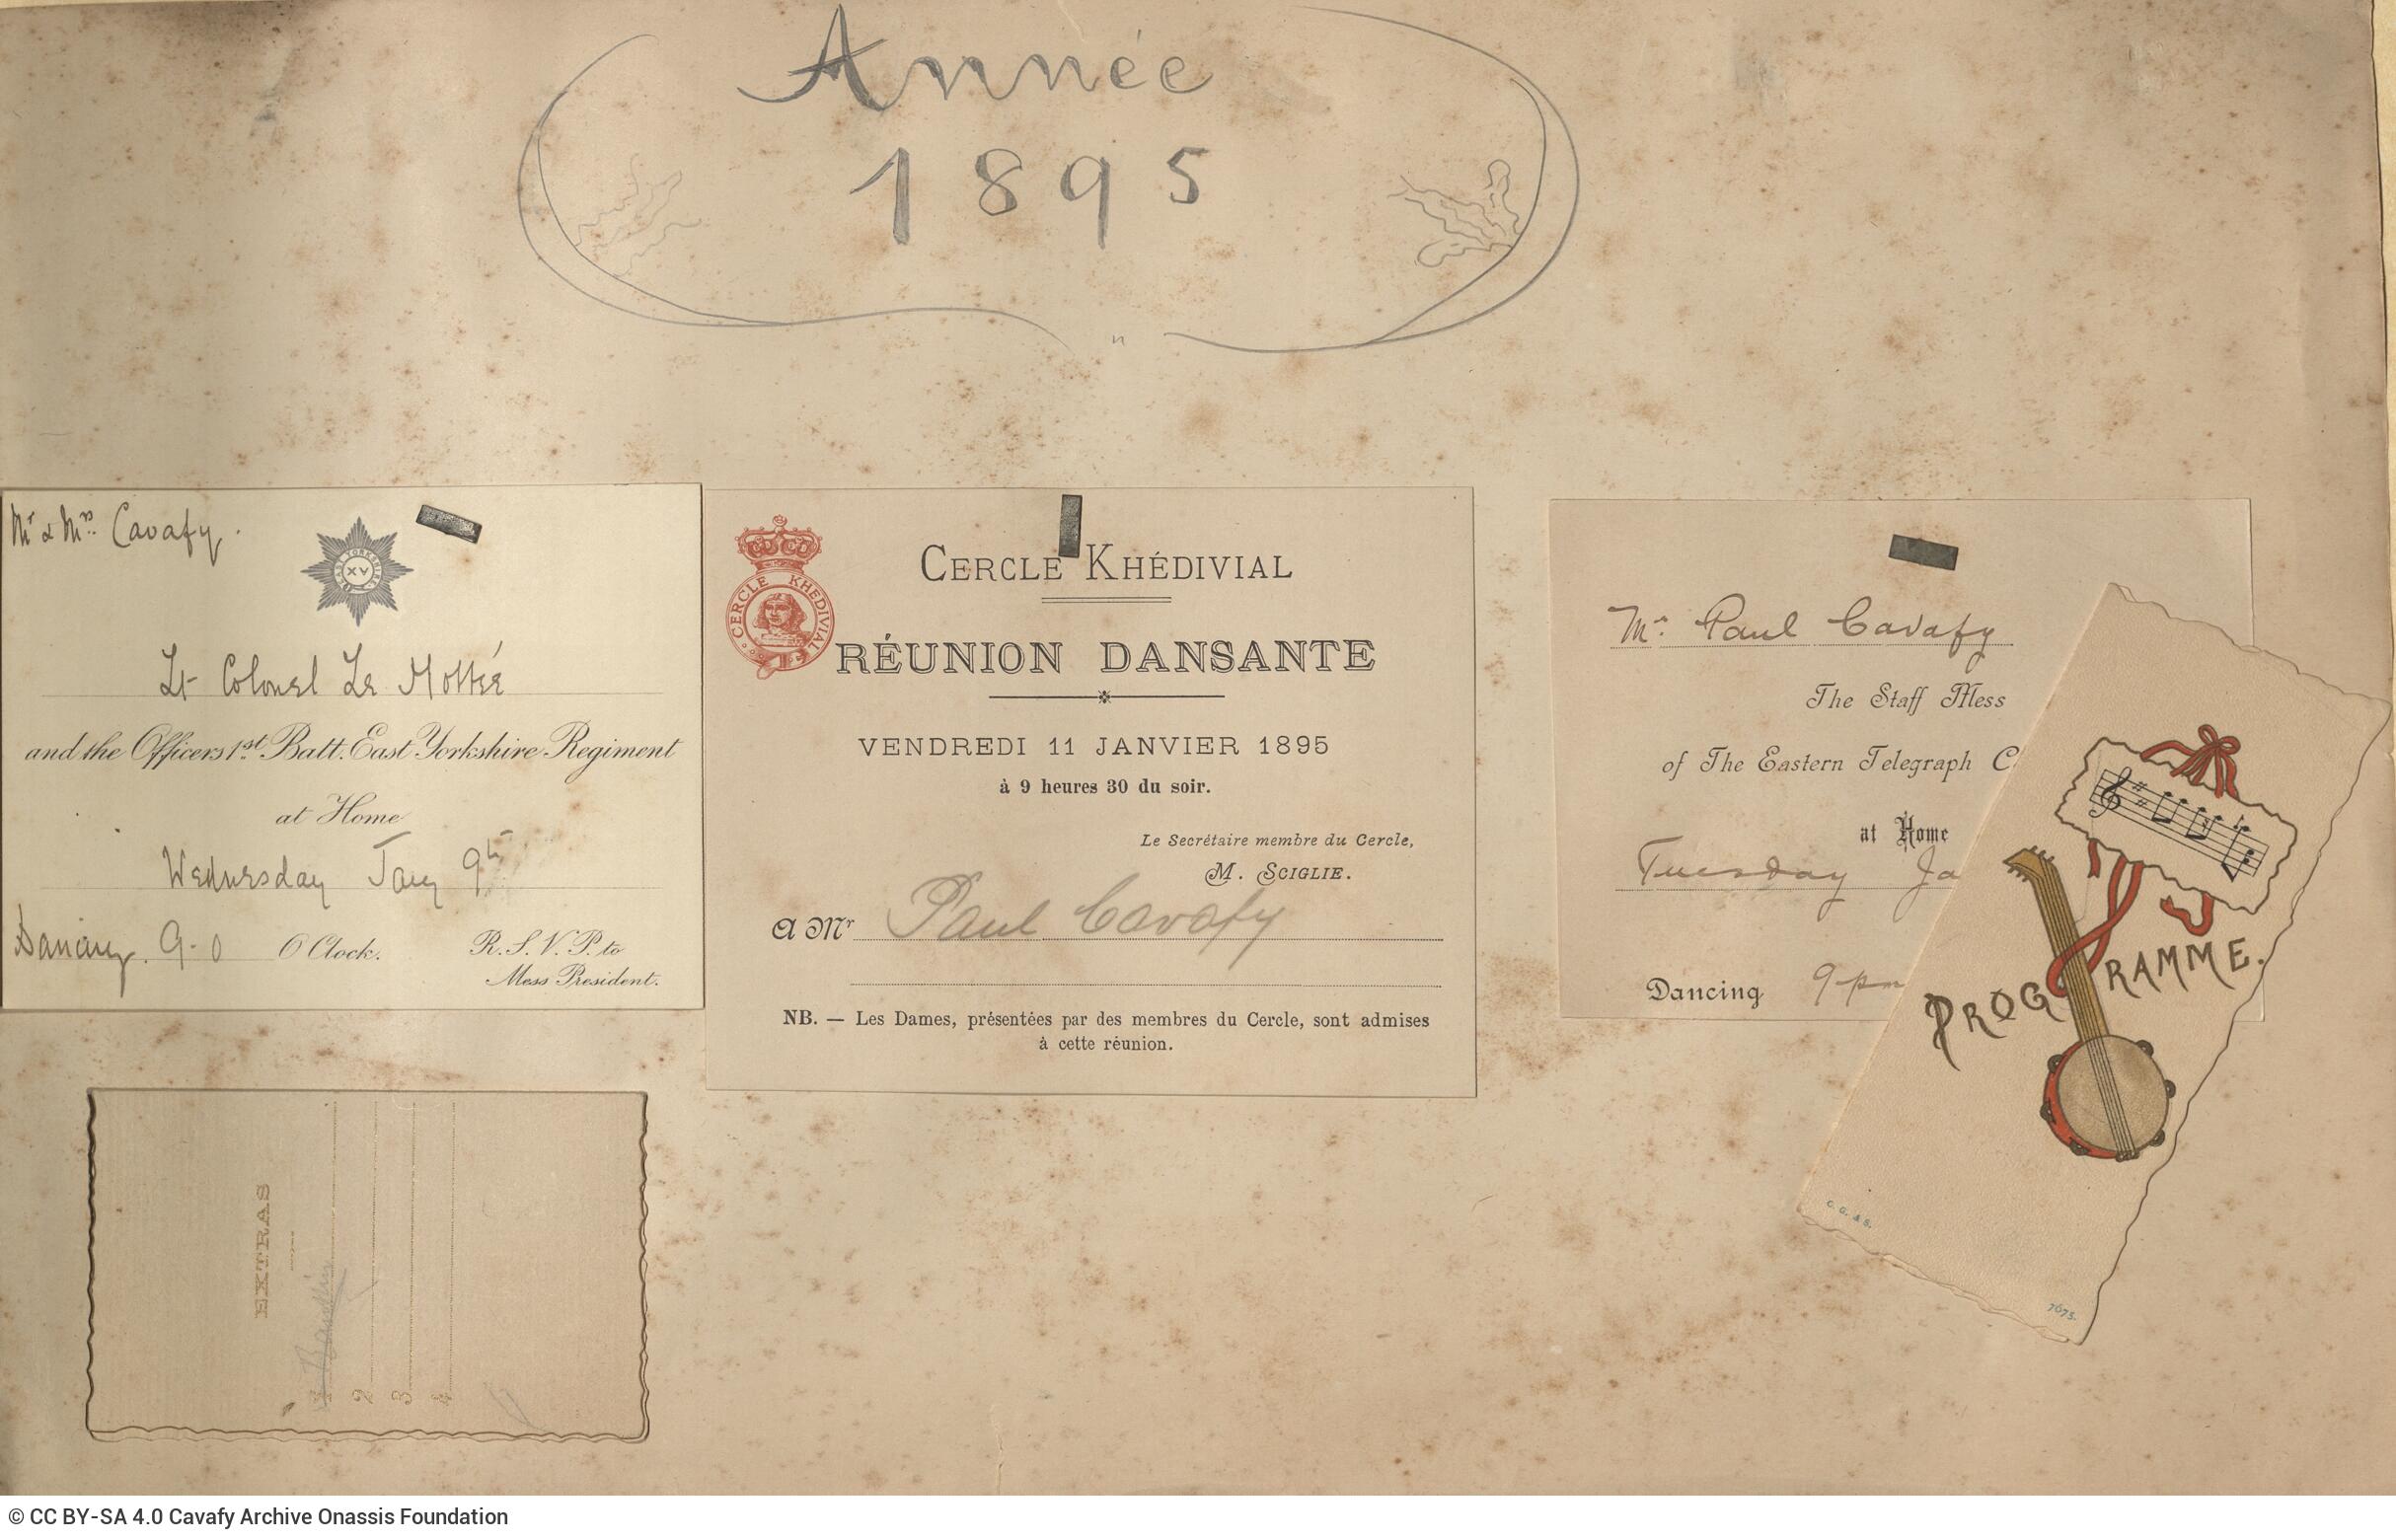 Année
1895
Mr & Mrs Cavafy.
EAST YORKSHIRE
XV
Lt Colonel Le Mottée
and the Officers 1st Batt. East Yorkshire Regiment
at Home
Wednesday Jany 9th
Dancing. 9-0 O'Clock.
R.S.V.P. to
Mess President.
CERCLE KHEDIVIAL
CERCLE KHÉDIVIAL
RÉUNION DANSANTE
VENDREDI 11 JANVIER 1895
à 9 heures 30 du soir.
Le Secrétaire membre du Cercle,
M. SCIGLIE.
A Mr Paul Cavafy
NB. — Les Dames, présentées par des membres du Cercle, sont admises
à cette réunion.
Mr. Paul Cavafy
The Staff Mess
of The Eastern Telegraph C
at Home
Tuesday Ja
Dancing 9 pm
PROGRAMME.
C. G. & S.
7675.
EXTRAS
1
2
3
4
© CC BY-SA 4.0 Cavafy Archive Onassis Foundation